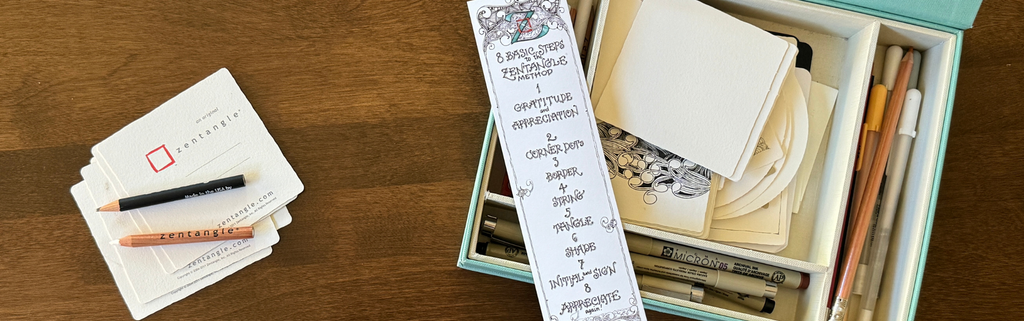 an original
zentangle®
Made in the USA by
zentangle®
zentangle.com
zentangle.com
8 BASIC STEPS
to the
ZENTANGLE
METHOD
1
GRATITUDE
and
APPRECIATION
2
CORNER DOTS
3
BORDER
4
STRING
5
TANGLE
6
SHADE
7
INITIAL and SIGN
8
APPRECIATE
again
MICRON 05